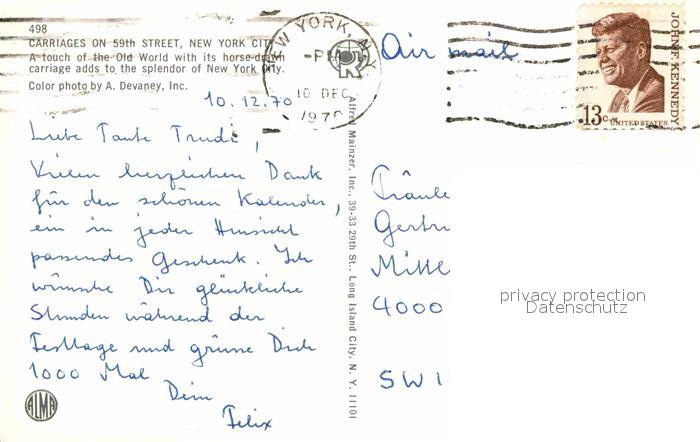 498
CARRIAGES ON 59th STREET, NEW YORK CITY
A touch of the Old World with its horse-drawn
carriage adds to the splendor of New York City.
Color photo by A. Devaney, Inc.
NEW YORK, N.Y.
-PM
10 DEC
1970
Air mail
JOHN F. KENNEDY
13c
UNITED STATES
10.12.70
Liebe Tante Trudi,
Vielen herzlichen Dank
für den schönen Kalender,
ein in jeder Hinsicht
passendes Geschenk. Ich
wünsche Dir glückliche
Stunden während der
Festtage und grüsse Dich
1000 Mal
Dein
Felix
ALMA
Alfred Mainzer, Inc., 39-33 29th St., Long Island City, N. Y. 11101
Fräule
Gertr
Mitte
4000
SWI
privacy protection
Datenschutz